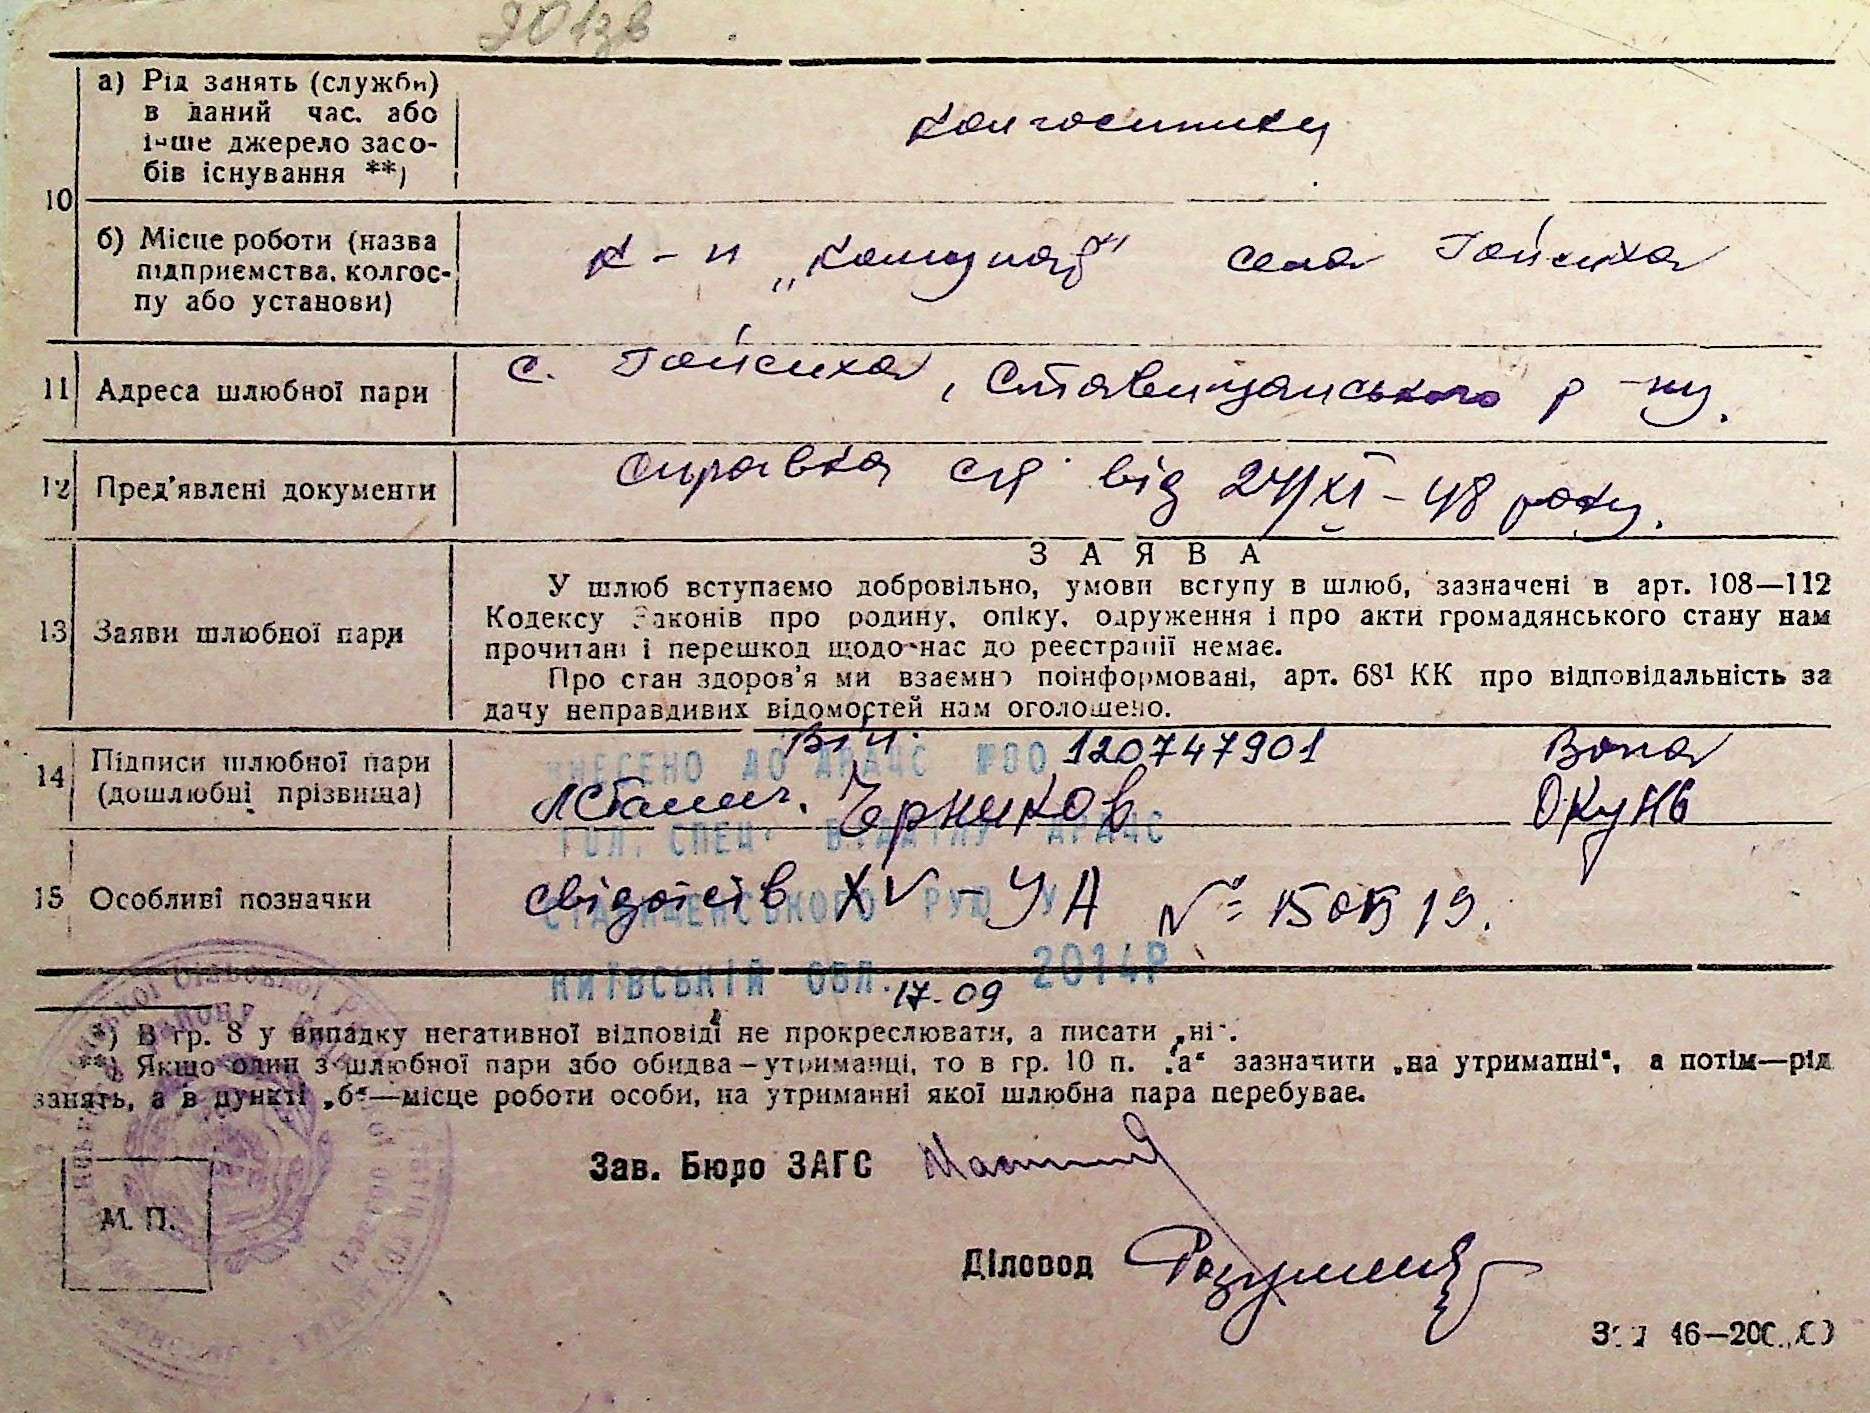 10
а) Рід занять (служби)
в даний час. або
інше джерело засо-
бів існування **)
колгоспники
б) Місце роботи (назва
підприємства, колгос-
пу або установи)
к-п „Комунар" села Гайсиха
11 Адреса шлюбної пари
с. Гайсиха, Ставищанського р-ну.
12 Пред'явлені документи
справка с/р від 24/XI-48 року.
13 Заяви шлюбної пари
ЗАЯВА
У шлюб вступаємо добровільно, умови вступу в шлюб, зазначені в арт. 108—112
Кодексу Законів про родину, опіку, одруження і про акти громадянського стану нам
прочитані і перешкод щодо нас до реєстрації немає.
Про стан здоров'я ми взаємно поінформовані, арт. 68¹ КК про відповідальність за
дачу неправдивих відомостей нам оголошено.
14 Підписи шлюбної пари
(дошлюбні прізвища)
Він. Вона
ВНЕСЕНО ДО ДРАЦС №00 120747901
Черников Окунь
ГОЛ. СПЕЦ. ВІДДІЛУ ДРАЦС
15 Особливі позначки
свідоцтв XV-УА №
СТАВИЩЕНСЬКОГО РУЮ У
КИЇВСЬКІЙ ОБЛ. 17.09 2014Р
*) В гр. 8 у випадку негативної відповіді не прокреслювати, а писати „ні".
**) Якщо один з шлюбної пари або обидва—утриманці, то в гр. 10 п. „а" зазначити „на утриманні", а потім—рід
занять, а в пункті „б"—місце роботи особи, на утриманні якої шлюбна пара перебуває.
Зав. Бюро ЗАГС
М. П.
Діловод